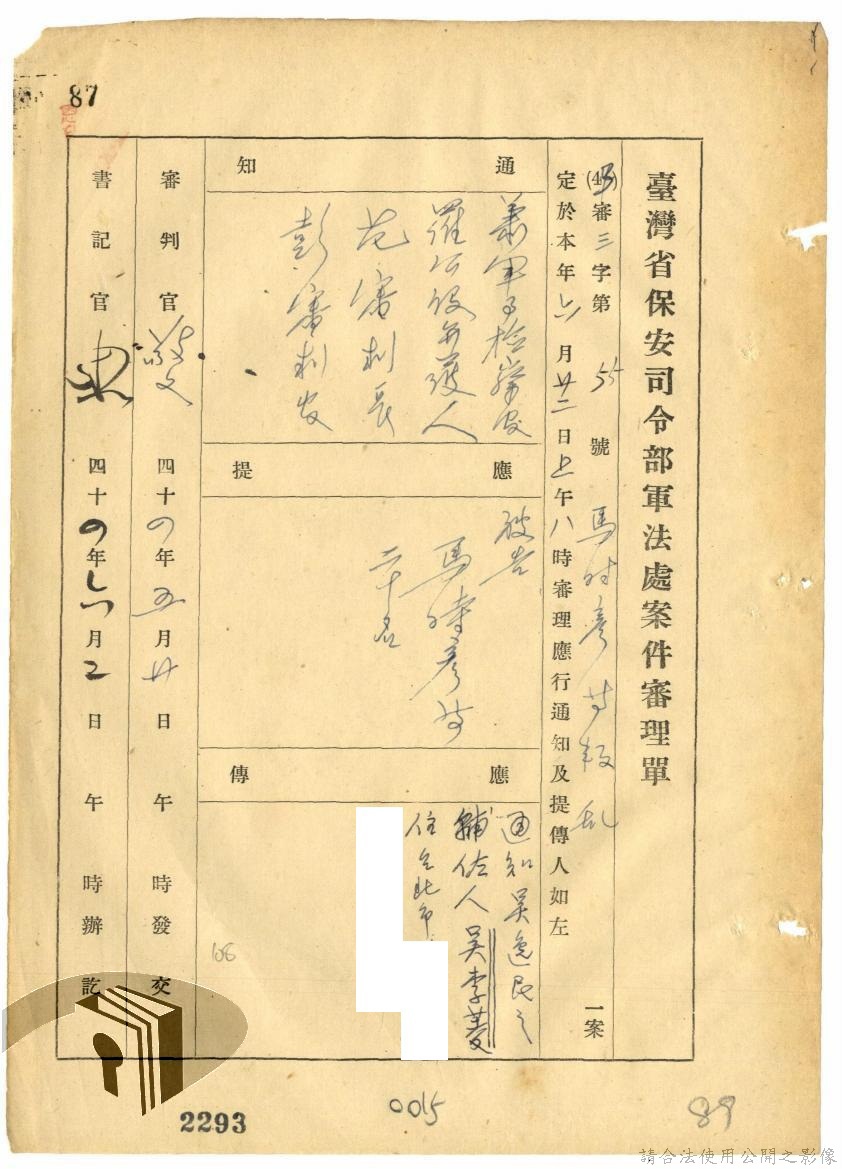 87
臺灣省保安司令部軍法處案件審理單
審三字第 55 號 馬時彥等叛乱 一案
定於本年六月廿二日上午八時審理應行通知及提傳人如左
通知
蕭軍事檢察官
羅公設辯護人
范審判長
彭審判官
應提
被告
馬時彥等
二十名
應傳
通知吳逸民之
輔佐人吳李菱
住台北市
審判官 四十四年五月廿日 午 時發交
書記官 四十四年六月2日 午 時辦訖
108
2293
0015
89
請合法使用公開之影像